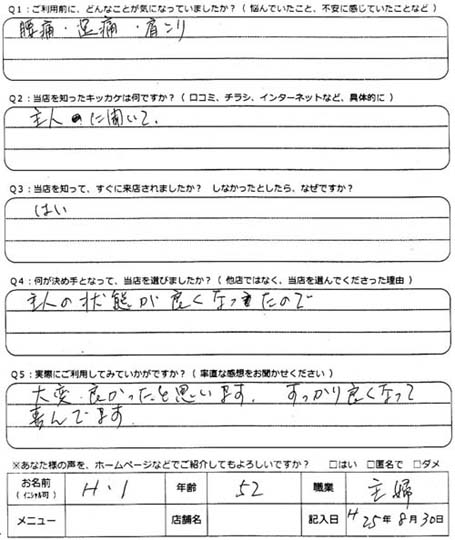 Q1：ご利用前に、どんなことが気になっていましたか？（ 悩んでいたこと、不安に感じていたことなど ）
腰痛・足痛・肩こり
Q2：当店を知ったキッカケは何ですか？（ 口コミ、チラシ、インターネットなど、具体的に ）
主人に聞いて、
Q3：当店を知って、すぐに来店されましたか？ しなかったとしたら、なぜですか？
はい
Q4：何が決め手となって、当店を選びましたか？（ 他店ではなく、当店を選んでくださった理由 ）
主人の状態が良くなってきたので
Q5：実際にご利用してみていかがですか？（ 率直な感想をお聞かせください ）
大変良かったと思います。すっかり良くなって
喜んでます
※あなた様の声を、ホームページなどでご紹介してもよろしいですか？ □はい □匿名で □ダメ
お名前（イニシャル可） H・I 年齢 52 職業 主婦
メニュー 店舗名 記入日 H25年8月30日